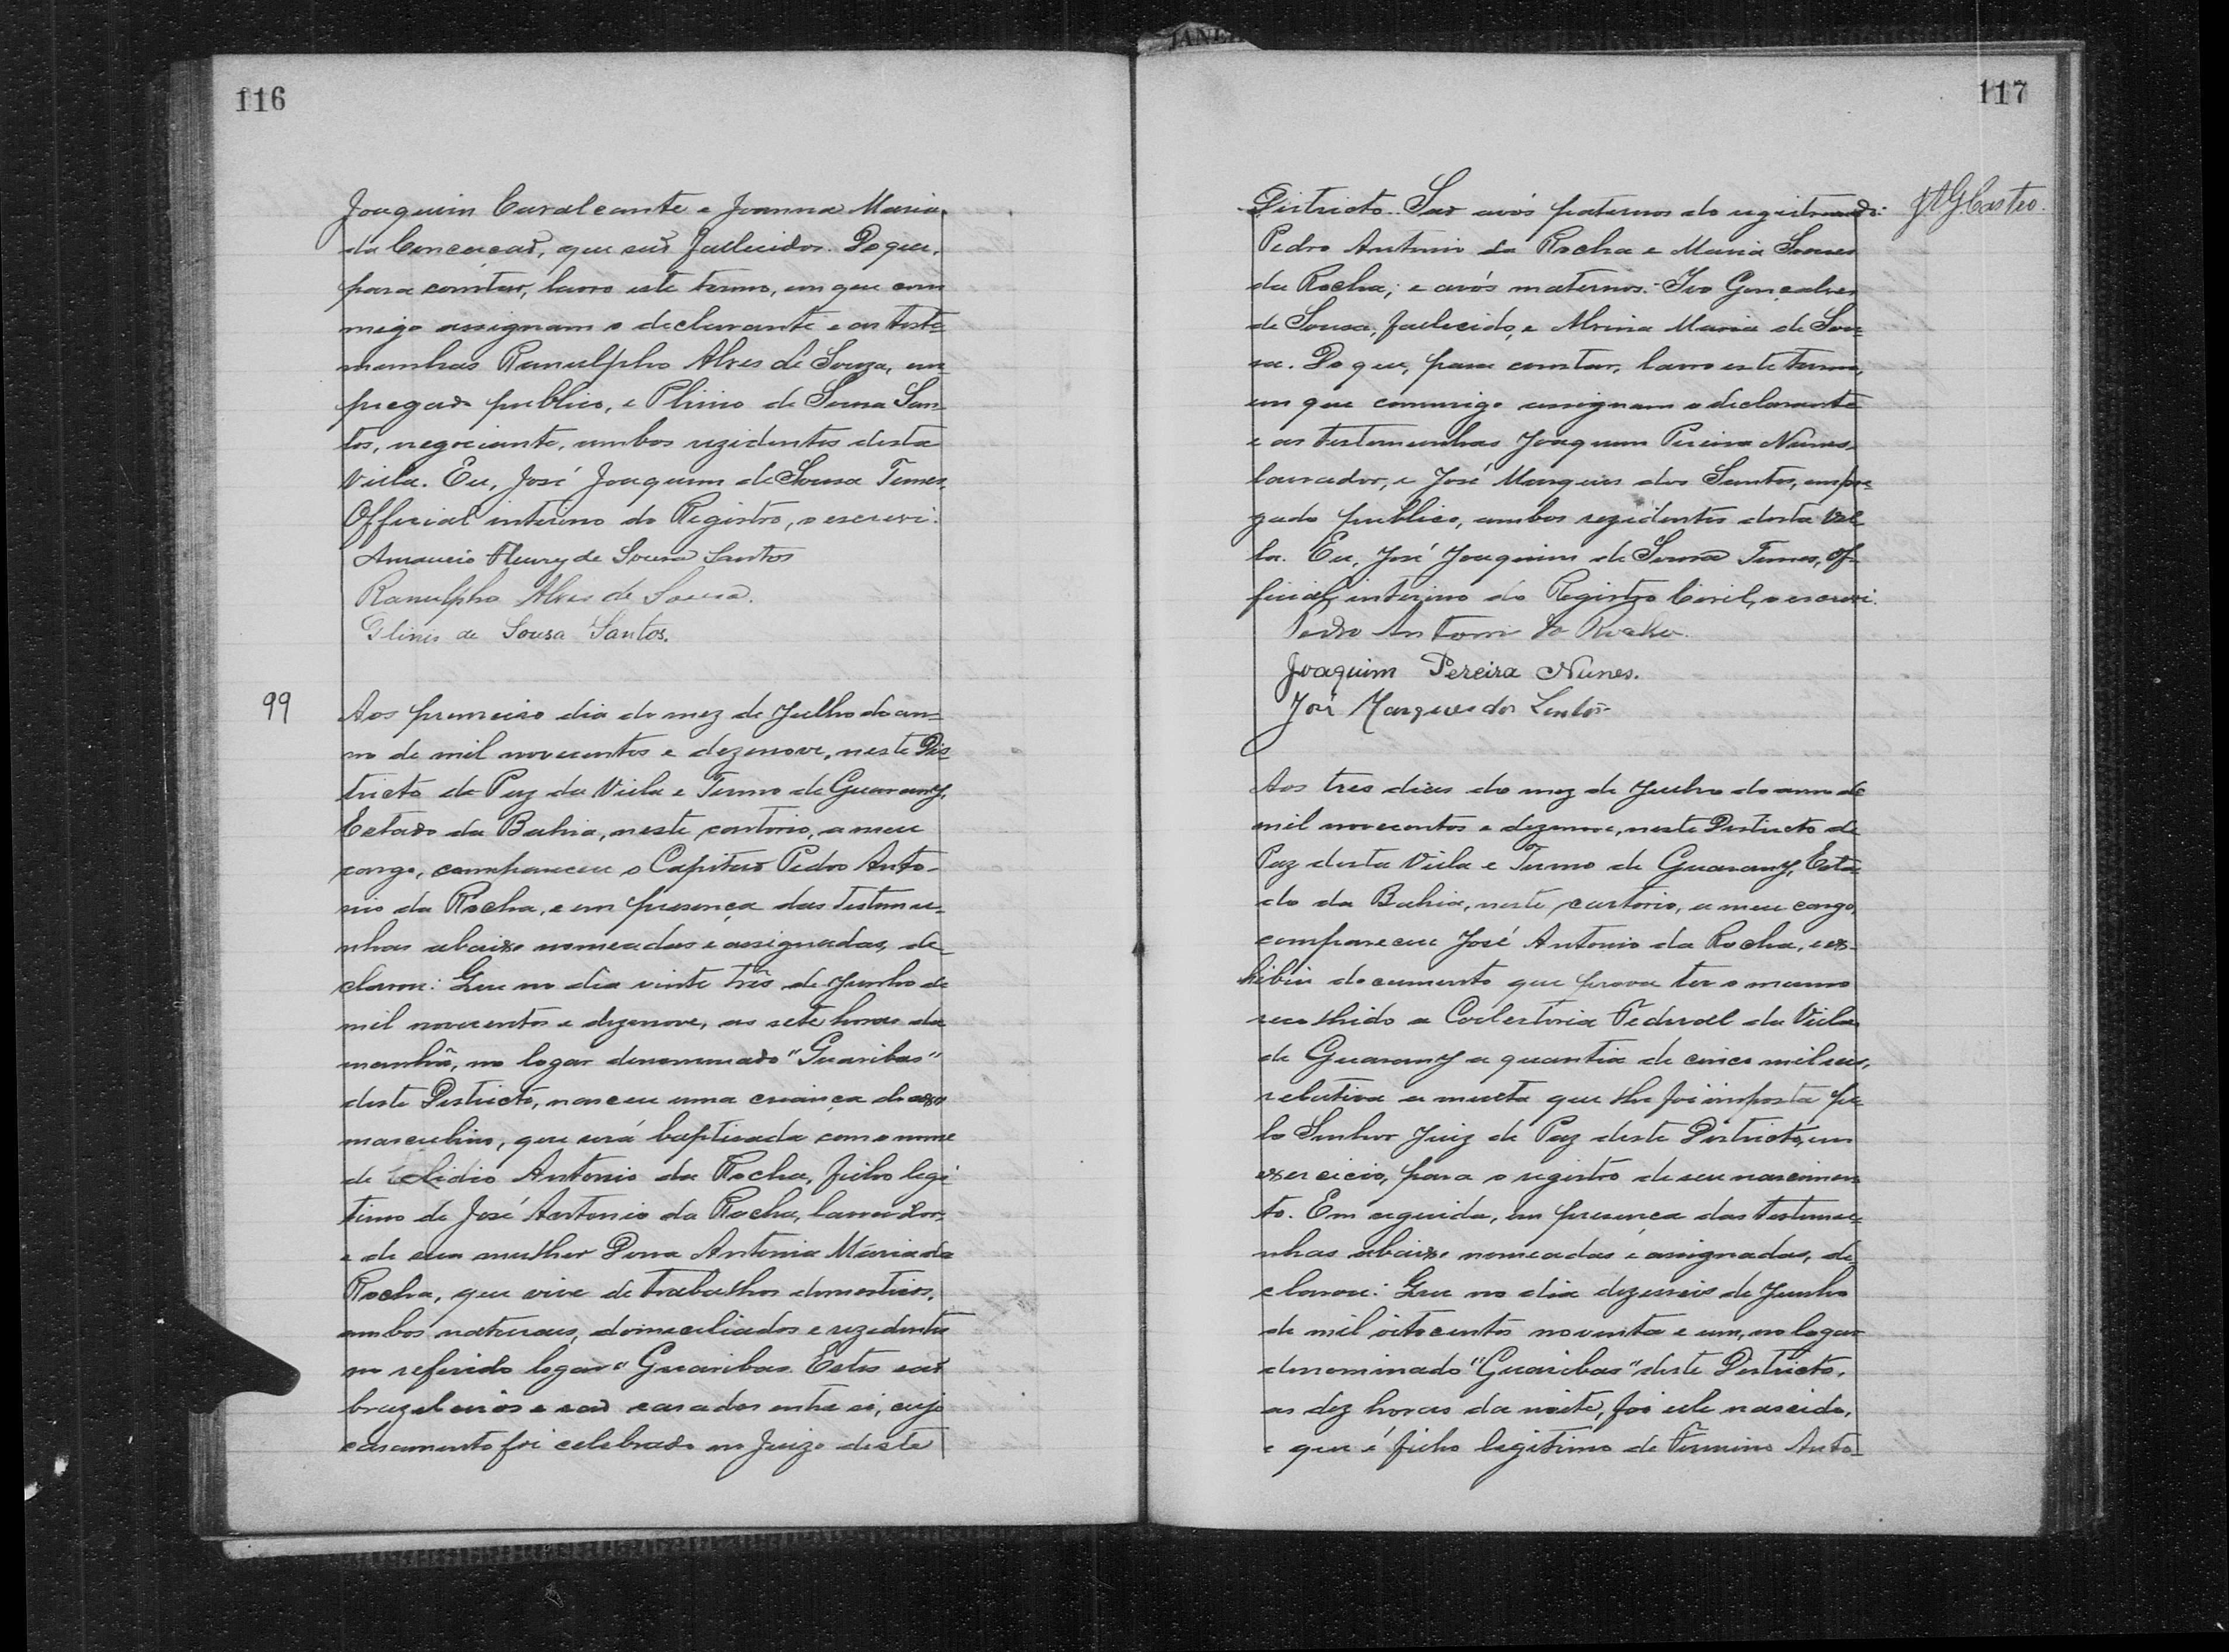 JANEI
116
Joaquim Cavalcante e Joanna Maria
da Conceiçaõ, que saõ fallecidos. Do que,
para constar, lavro este termo, em que com
migo assignam o declarante e as teste
munhas Ranulpho Alves de Souza, em-
pregado publico, e Plinio de Sousa San-
tos, negociante, ambos rezidentes desta
Villa. Eu, José Joaquim de Sousa Tunes,
Official interino do Registro, o escrevi.
Amancio Fleury de Sousa Santos
Ranulpho Alves de Sousa.
Plinio de Sousa Santos.
99
Aos premeiro dia do mez de Julho do an-
no de mil novecentos e dezenove, neste Dis-
tricto de Paz da Villa e Termo de Guarany,
Estado da Bahia, neste cartorio, a meu
cargo, compareceu o Capitaõ Pedro Anto-
nio da Rocha, e em presença das testemu-
nhas abaixo nomeadas e assignadas, de-
clarou: Que no dia vinte três de Junho de
mil novecentos e dezenove, as sete horas da
manhã, no logar denominado "Guaribas"
deste Districto, nasceu uma criança do sexo
masculino, que será baptisada com o nome
de Elidio Antonio da Rocha, filho legi-
timo de José Antonio da Rocha, lavrador,
e de sua mulher Dona Antonia Maria da
Rocha, que vive de trabalhos domesticos,
ambos naturaes, domeciliados e rezidentes
no referido logar "Guaribas. Estes saõ
brazeleiros e saõ casados entre si, cujo
casamento foi celebrado no Juizo deste
117
Districto. Saõ avós paternos do registrando:
JAGCastro.
Pedro Antonio da Rocha e Maria
da Rocha; e avós maternos: Ivo Gonçalves
de Sousa, fallecido, e Maria de Sou-
sa. Do que, para constar, lavro este termo,
em que commigo assignam o declarante
e as testemunhas Joaquim Pereira Nunes,
lavrador, e José Marques dos Santos, empre-
gado publico, ambos rezidentes desta Vil-
la. Eu, José Joaquim de Sousa Tunes, Of-
ficial interino do Registro Civil, o escrevi.
Pedro Antonio da Rocha.
Joaquim Pereira Nunes.
José Marques dos Santos
Aos tres dias do mez de Julho do anno de
mil novecentos e dezenove, neste Districto de
Paz desta Villa e Termo de Guarany, Esta-
do da Bahia, neste cartorio, a meu cargo,
compareceu José Antonio da Rocha, e ex-
hibiu documento que prova ter o mesmo
recolhido a Collectoria Federal da Villa
de Guarany a quantia de cinco mil reis,
relativa a multa que lhe foi imposta pe-
lo Senhor Juiz de Paz deste Districto, em
exercicio, para o registro de seu nascimen
to. Em seguida, em presença das testemu-
nhas abaixo nomeadas e assignadas, de-
clarou: Que no dia dezesseis de Junho
de mil oitocentos noventa e um, no logar
denominado "Guaribas" deste Districto,
as dez horas da noite, foi elle nascido,
e que é filho legitimo de Firmino Anto-